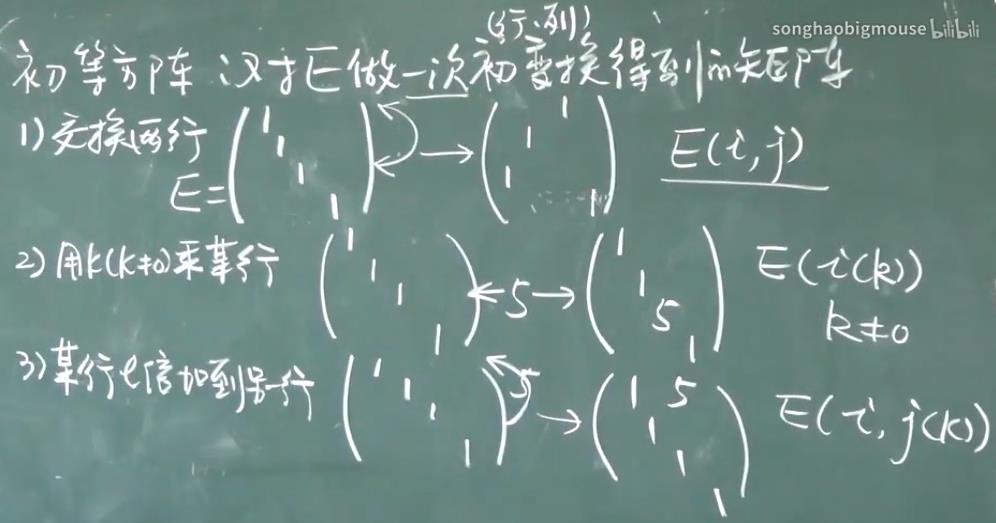 songhaobigmouse bilibili
(行、列)
初等方阵:对E做一次初变换得到的矩阵
1)交换两行 E= ( 1 1 1 1 ) → ( 1 1 1 1 ) E(i,j)
2)用k(k≠0)乘某行 ( 1 1 1 1 ) ←5→ ( 1 1 5 1 ) E(i(k))
k≠0
3)某行l倍加到另一行 ( 1 1 1 1 ) 5 → ( 1 5 1 1 1 ) E(i,j(k))